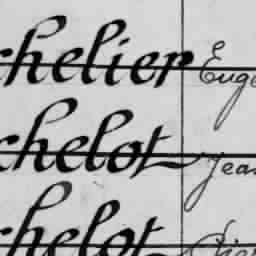 chelier Euge
chelot Jean
chelot Pier